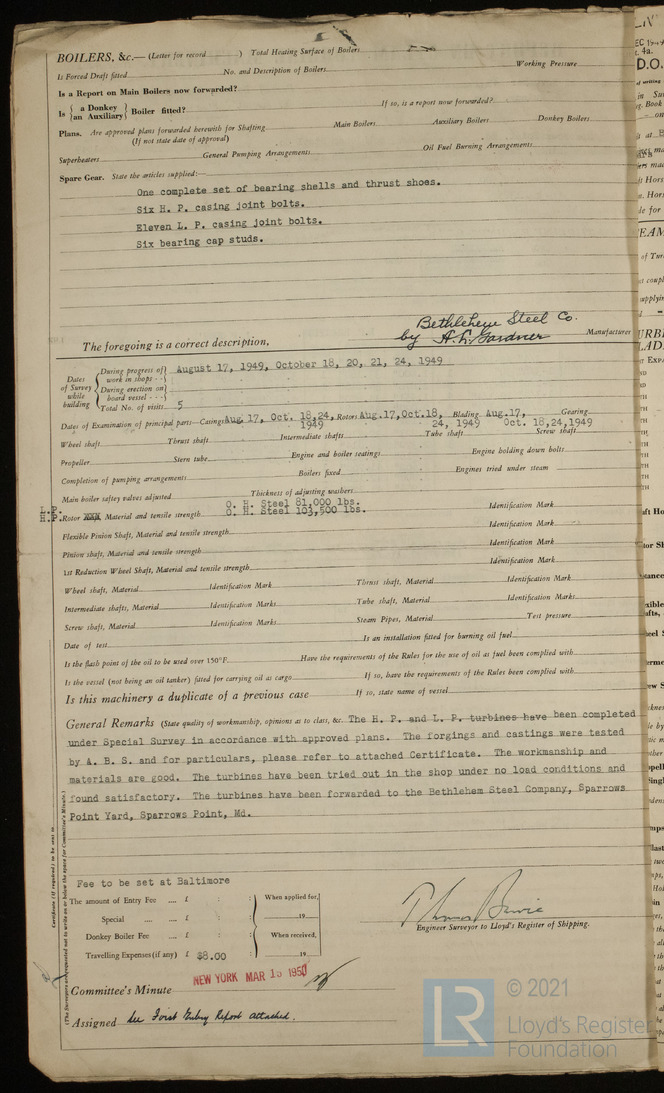 BOILERS, &c.— (Letter for record ) Total Heating Surface of Boilers
Is Forced Draft fitted No. and Description of Boilers Working Pressure
Is a Report on Main Boilers now forwarded?
Is { a Donkey / an Auxiliary } Boiler fitted? If so, is a report now forwarded?
Plans. Are approved plans forwarded herewith for Shafting Main Boilers Auxiliary Boilers Donkey Boilers
(If not state date of approval)
Superheaters General Pumping Arrangements Oil Fuel Burning Arrangements
Spare Gear. State the articles supplied:—
One complete set of bearing shells and thrust shoes.
Six H. P. casing joint bolts.
Eleven L. P. casing joint bolts.
Six bearing cap studs.
Bethlehem Steel Co.
The foregoing is a correct description, by Manufacturer
Dates of Survey while building
During progress of work in shops - - August 17, 1949, October 18, 20, 21, 24, 1949
During erection on board vessel - - -
Total No. of visits 5
Dates of Examination of principal parts—Casings Aug. 17, Oct. 18,24, 1949 Rotors Aug.17,Oct.18, 24, 1949 Blading Aug.17, Oct. 18,24,1949 Gearing
Wheel shaft Thrust shaft Intermediate shafts Tube shaft Screw shaft
Propeller Stern tube Engine and boiler seatings Engine holding down bolts
Completion of pumping arrangements Boilers fixed Engines tried under steam
Main boiler safety valves adjusted Thickness of adjusting washers
L.P. O. H. Steel 81,000 lbs.
H.P. Rotor Material and tensile strength O. H. Steel 103,500 lbs. Identification Mark
Flexible Pinion Shaft, Material and tensile strength Identification Mark
Pinion shaft, Material and tensile strength Identification Mark
1st Reduction Wheel Shaft, Material and tensile strength Identification Mark
Wheel shaft, Material Identification Mark Thrust shaft, Material Identification Mark
Intermediate shafts, Material Identification Marks Tube shaft, Material Identification Marks
Screw shaft, Material Identification Marks Steam Pipes, Material Test pressure
Date of test Is an installation fitted for burning oil fuel
Is the flash point of the oil to be used over 150°F. Have the requirements of the Rules for the use of oil as fuel been complied with
Is the vessel (not being an oil tanker) fitted for carrying oil as cargo If so, have the requirements of the Rules been complied with
Is this machinery a duplicate of a previous case If so, state name of vessel
General Remarks (State quality of workmanship, opinions as to class, &c. The H. P. and L. P. turbines have been completed
under Special Survey in accordance with approved plans. The forgings and castings were tested
by A. B. S. and for particulars, please refer to attached Certificate. The workmanship and
materials are good. The turbines have been tried out in the shop under no load conditions and
found satisfactory. The turbines have been forwarded to the Bethlehem Steel Company, Sparrows
Point Yard, Sparrows Point, Md.
Certificate (if required) to be sent to
(The Surveyors are requested not to write on or below the space for Committee's Minute.)
Fee to be set at Baltimore
The amount of Entry Fee .... £ : : When applied for,
Special .... .... £ : : 19
Donkey Boiler Fee .... £ : : When received,
Travelling Expenses (if any) £ $8.00 : 19
Engineer Surveyor to Lloyd's Register of Shipping.
NEW YORK MAR 15 1950
Committee's Minute
Assigned See First Entry Report attached.
© 2021
LR
Lloyd's Register
Foundation